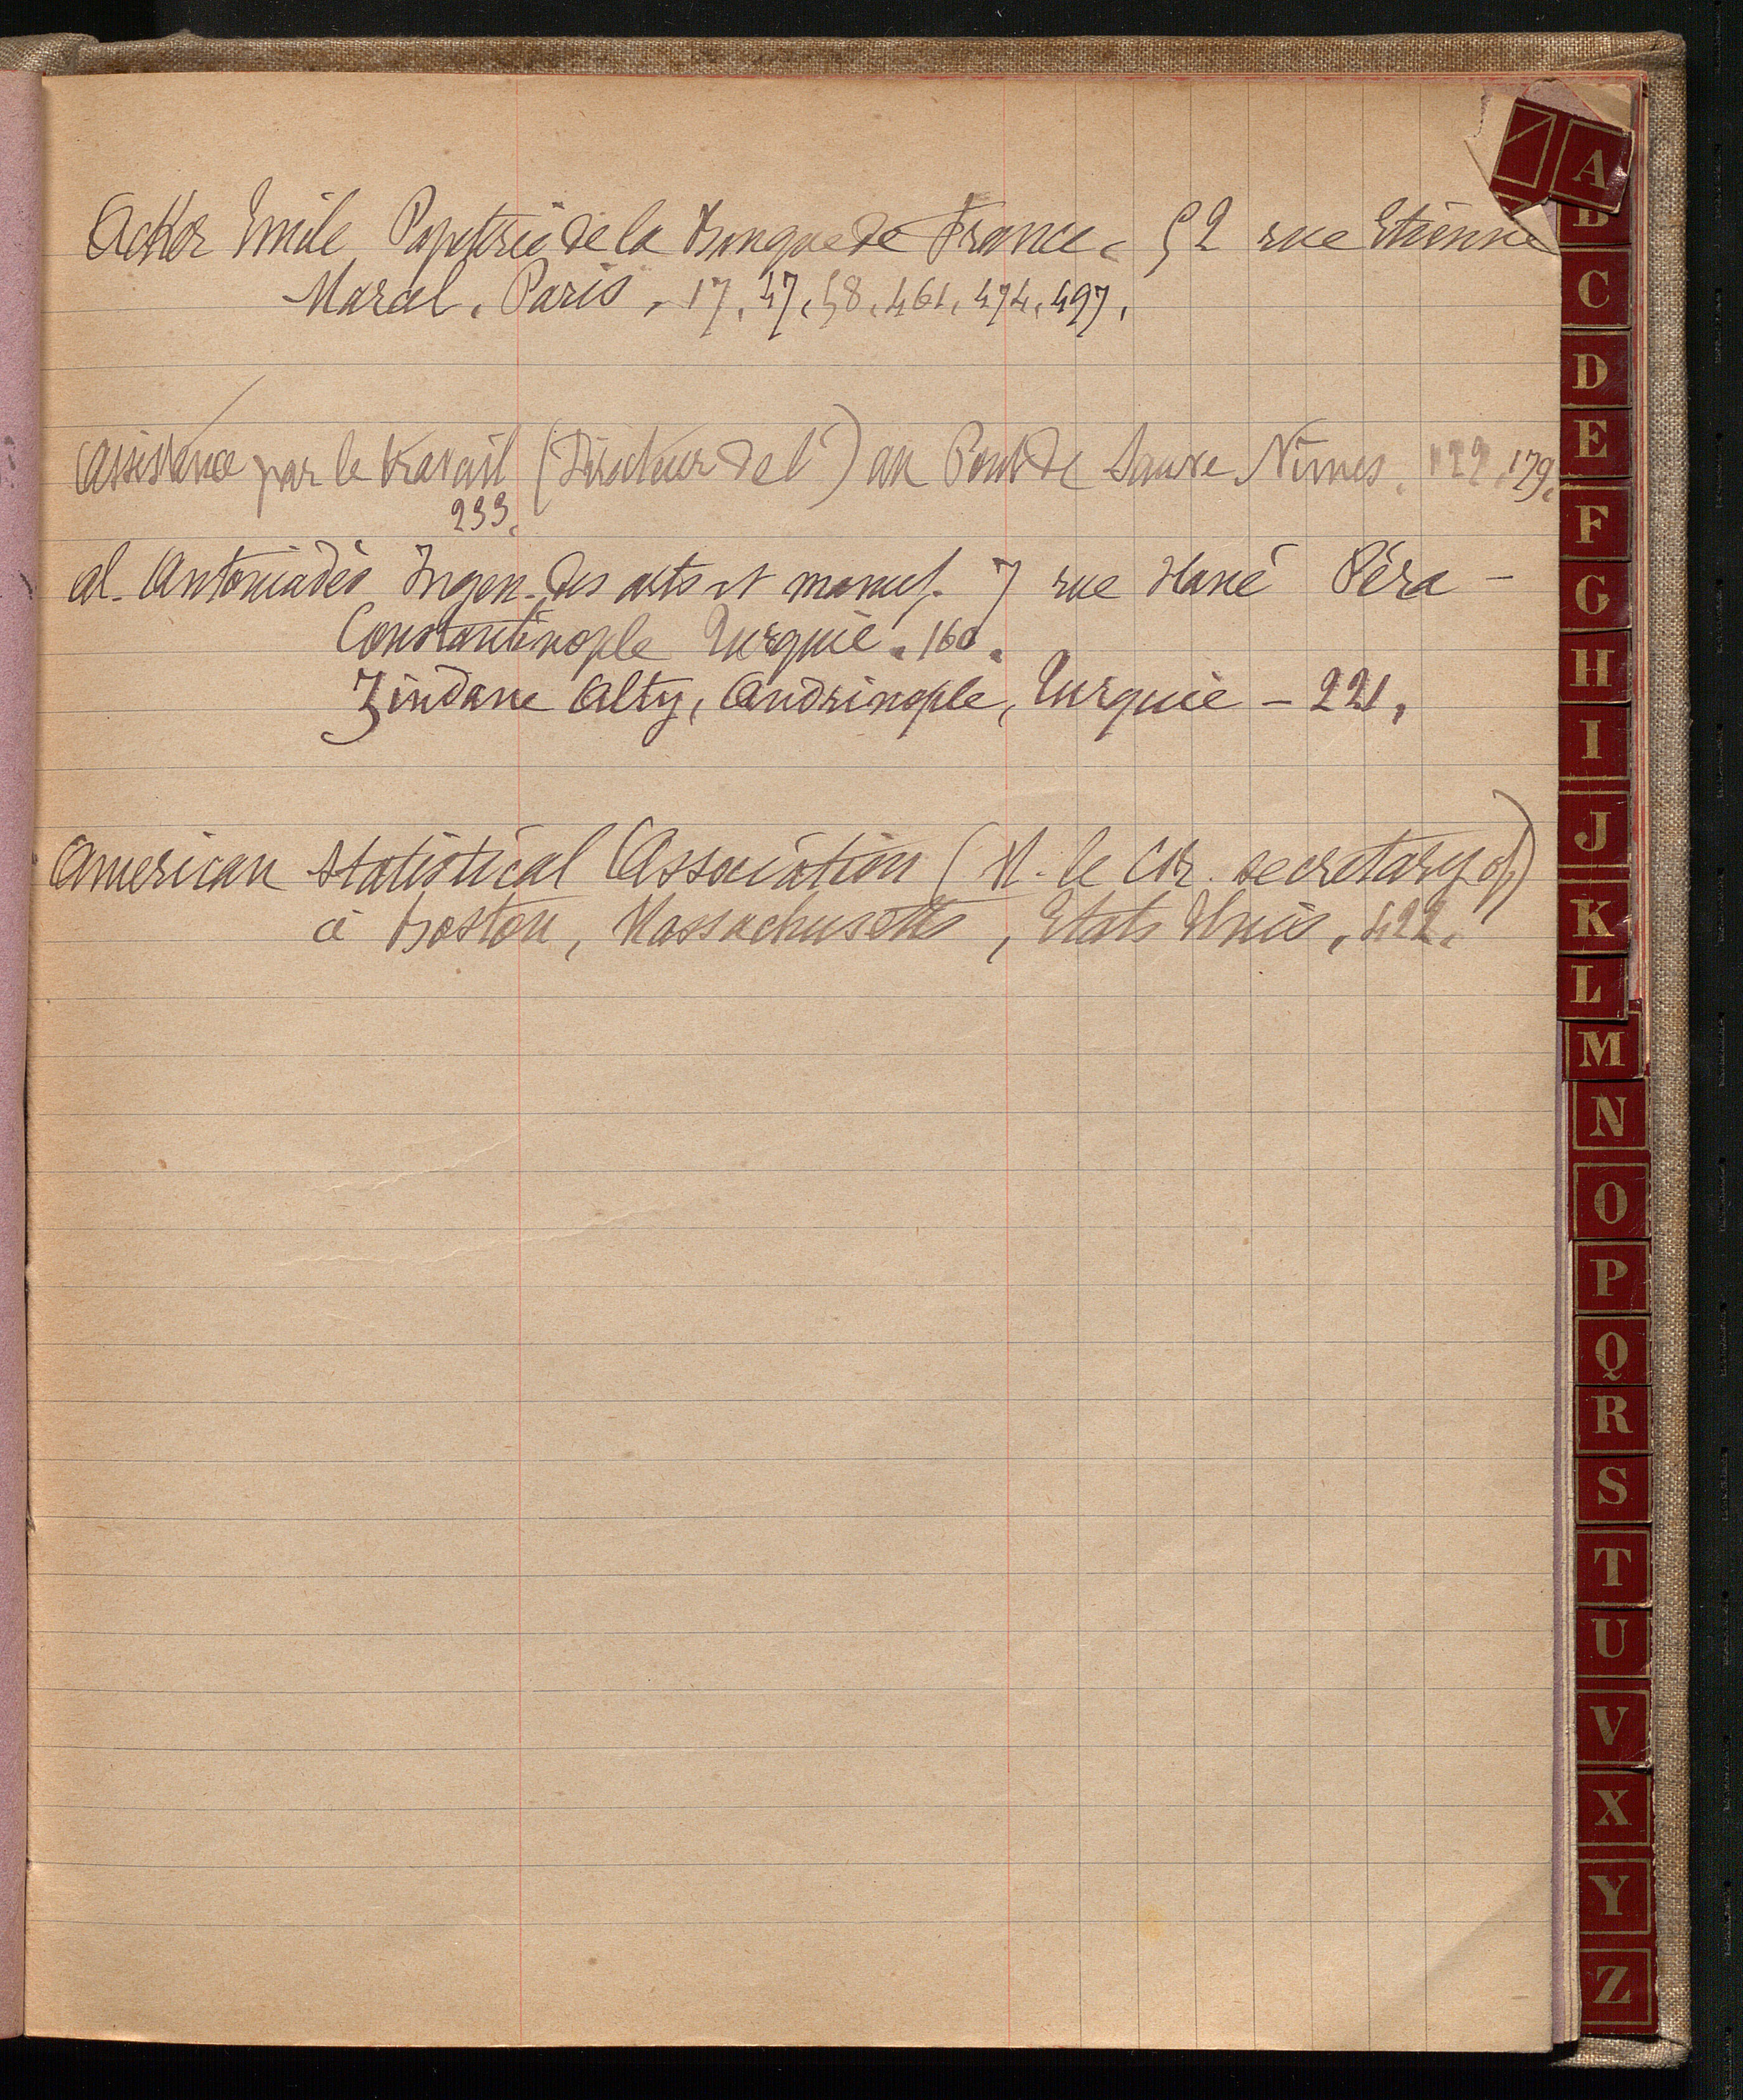 Acker Emile Papeterie de la Banque de France. 52 rue Etienne
Marcel. Paris. 17. 47. 58. 461. 474. 497.
Assistance par le travail (Directeur de l') au Pont de Sauve Nimes. 122. 179.
233.
Al. Antoniadès Ingen. des arts et manuf. 7 rue Hané Péra –
Constantinople Turquie. 160.
Zindane Alty, Andrinople, Turquie – 221.
American Statistical Association (M. le Cor. secretary of)
à Boston, Massachusetts, Etats Unis. 422.
A
B
C
D
E
F
G
H
I
J
K
L
M
N
O
P
Q
R
S
T
U
V
X
Y
Z